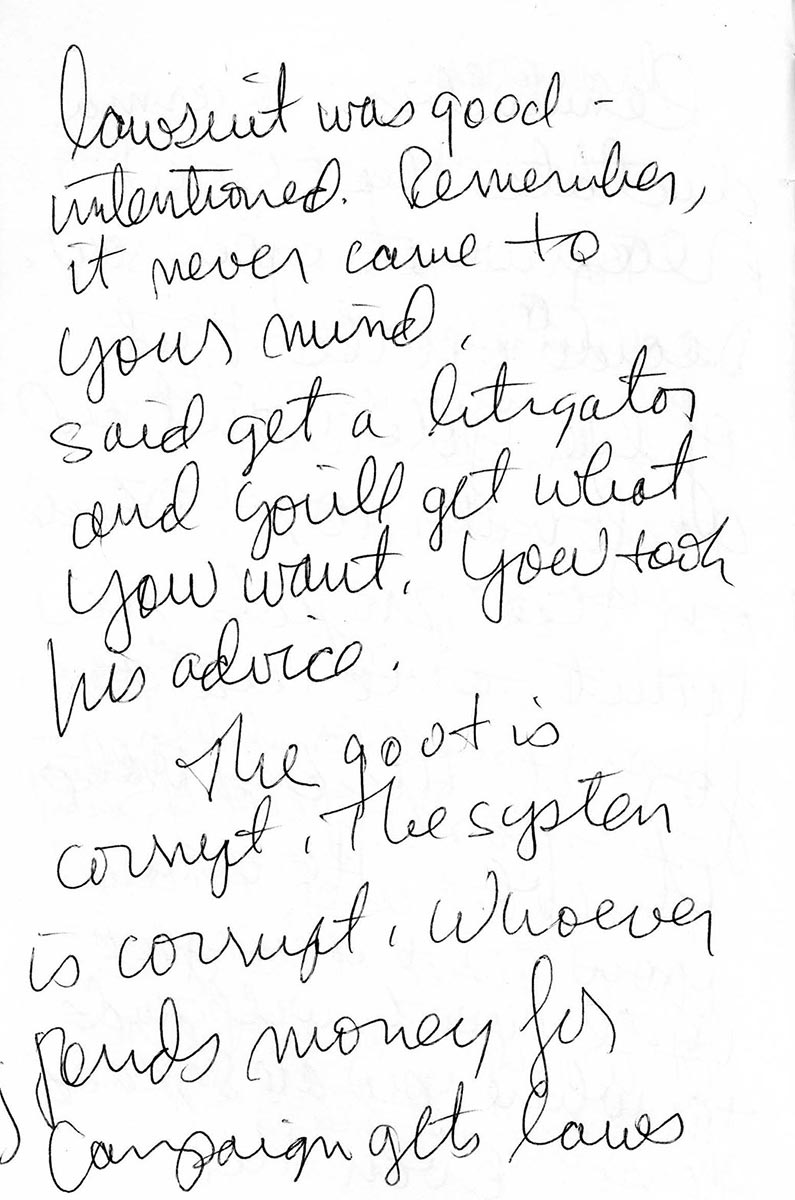 lawsuit was good-
intentioned. Remember,
it never came to
your mind.
said get a litigator
and you'll get what
you want. You took
his advice.
The govt is
corrupt. The system
is corrupt. Whoever
spends money for
campaign gets laws